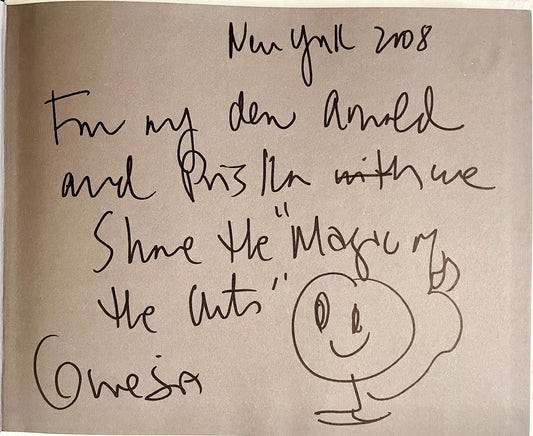 New York 2008
For my dear Arnold
and Priska with we
Share the "Magic of
the Arts"